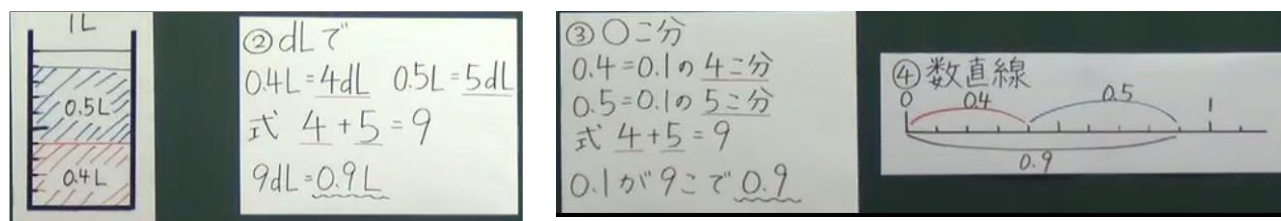 1L
0.5L
0.4L
②dLで
0.4L=4dL 0.5L=5dL
式 4+5=9
9dL=0.9L
③〇こ分
0.4=0.1の4こ分
0.5=0.1の5こ分
式 4+5=9
0.1が9こで0.9
④数直線
0 0.4 0.5 1
0.9